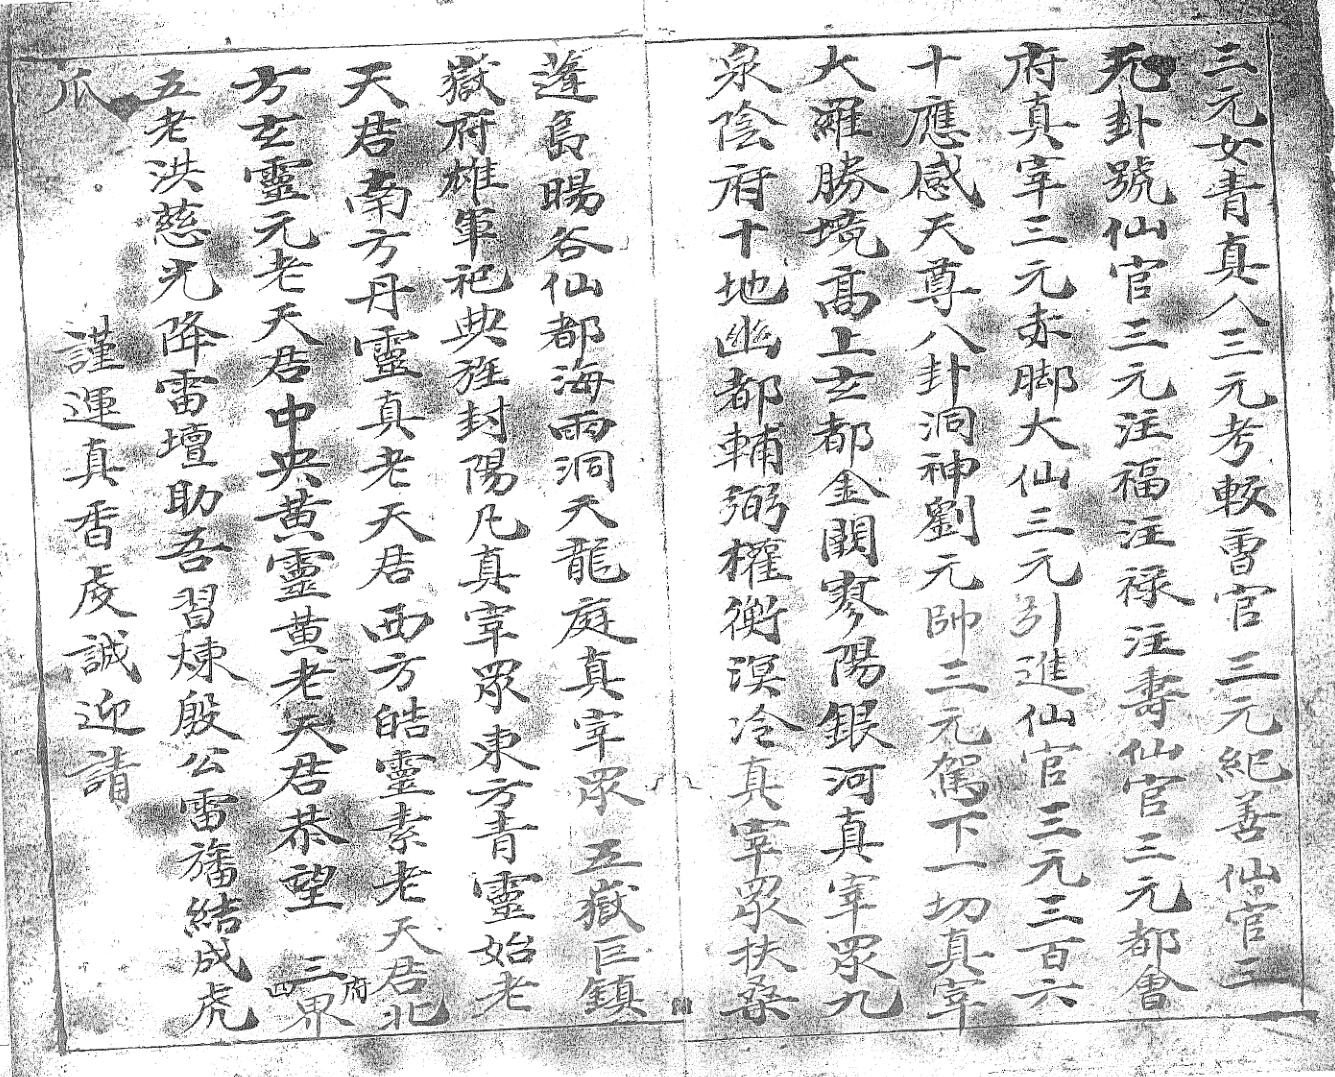 三元女青真人三元考較曹官三元紀善仙官三
元卦號仙官三元注福注祿注壽仙官三元都會
府真宰三元赤脚大仙三元引進仙官三元三百六
十應感天尊八卦洞神劉元帥三元駕下一切真宰
大羅勝境高上玄都金闕寥陽銀河真宰眾九
泉陰府十地幽都輔弼權衡溟冷真宰眾扶桑
蓬島暘谷仙都海雨洞天龍庭真宰眾五嶽巨鎮
嶽府雄軍祀典旌封陽凡真宰眾東方青靈始老
天君南方丹靈真老天君西方皓靈素老天君北
方玄靈元老天君中央黃靈黃老天君恭望三界四府
五老洪慈光降雷壇助吾習煉殷公雷旛結成虎
爪 謹運真香虔誠迎請